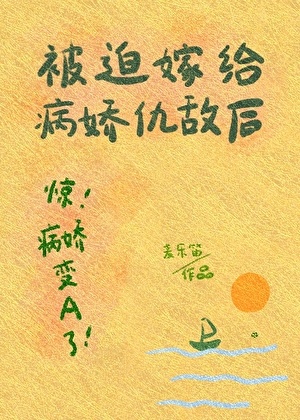 被迫嫁给
病娇仇敌后
惊！
病娇
变A
了！
麦乐笛
作品